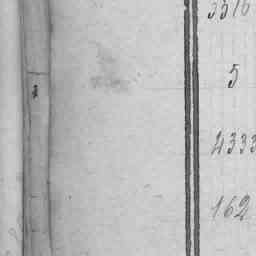 3516
5
4333
162